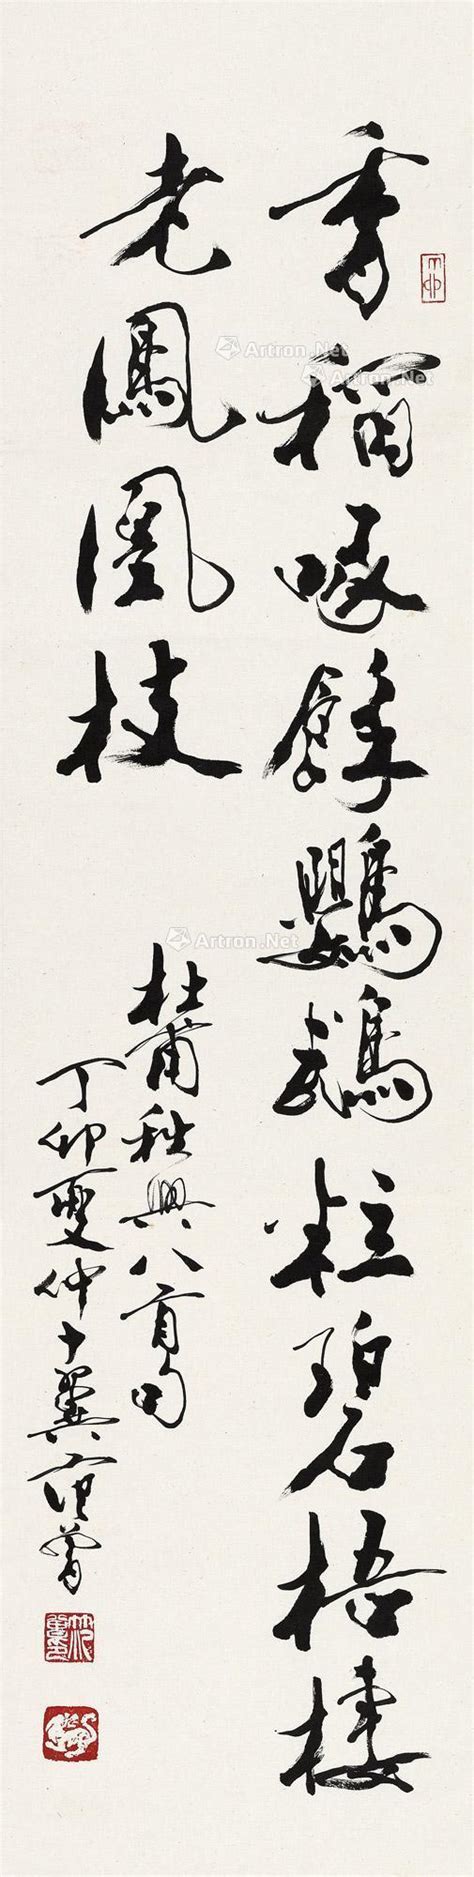 香稻啄餘鸚鵡粒碧梧棲
老鳳凰枝
杜甫秋興八首句
丁卯夏仲十翼范曾
Artron.Net
Artron.Net
Artron.Net